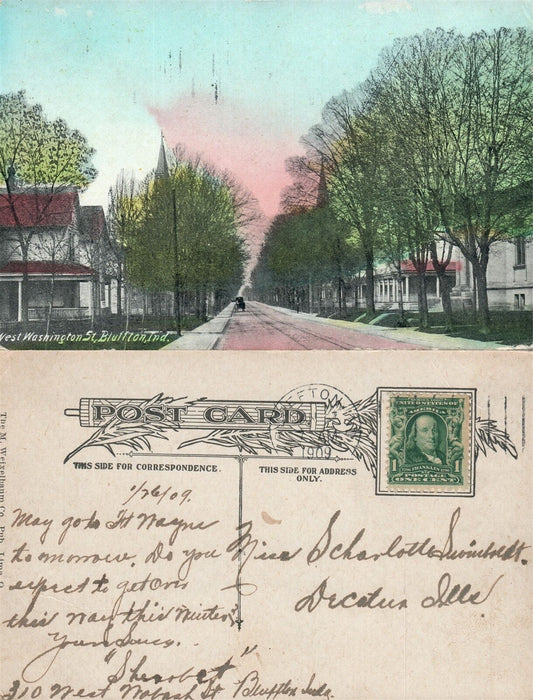 West Washington St, Bluffton, Ind.
The M. Wetzelbaum Co. Pub. Lima, O.
POST CARD
THIS SIDE FOR CORRESPONDENCE.
THIS SIDE FOR ADDRESS
ONLY.
1909
UNITED STATES OF
AMERICA
FRANKLIN
1 1
POSTAGE
ONE CENT
1/26/09.
May go to Ft Wayne
to morrow. Do you
expect to get over
this way this Winter?
Yours
"Sherbet"
310 West Wabash St Bluffton Inda.
Miss Scharlotte
Decatur Ills